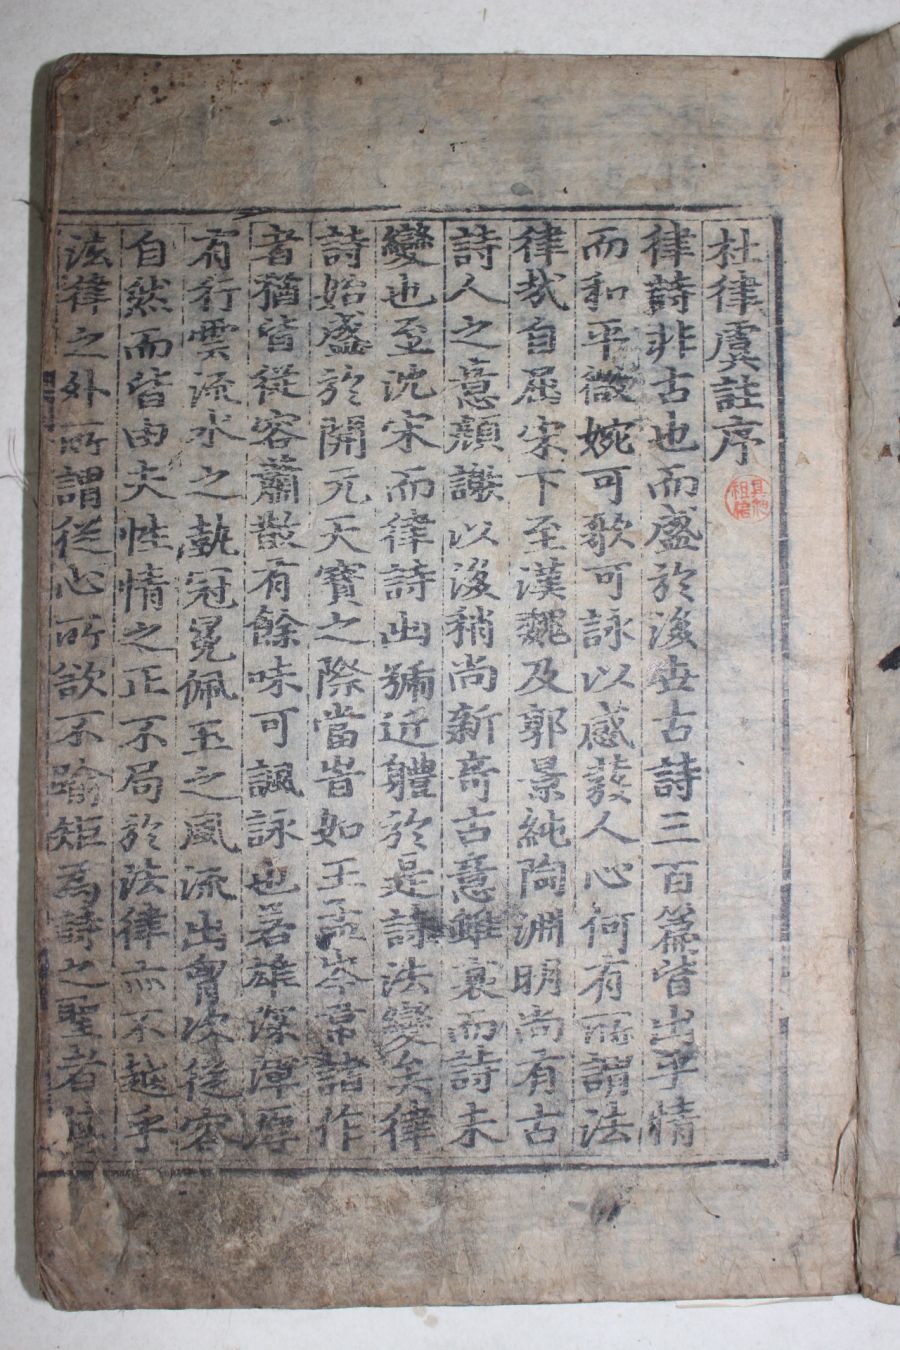 杜律虞註序
律詩非古也而盛於後世古詩三百篇皆出乎情
而和平微婉可歌可詠以感發人心何有所謂法
律㢤自屈宋下至漢魏及郭景純陶淵明尚有古
詩人之意顔謝以後稍尚新竒古意雖衰而詩未
變也至沈宋而律詩出號近體於是詩法變矣律
詩始盛於開元天寳之際當旹如王孟岑韋諸作
者猶皆從容蕭散有餘味可諷詠也若雄深渾厚
有行雲流水之埶冠冕佩玉之風流出胷次從容
自然而皆由夫性情之正不局於法律亦不越乎
法律之外所謂從心所欲不踰矩為詩之聖者